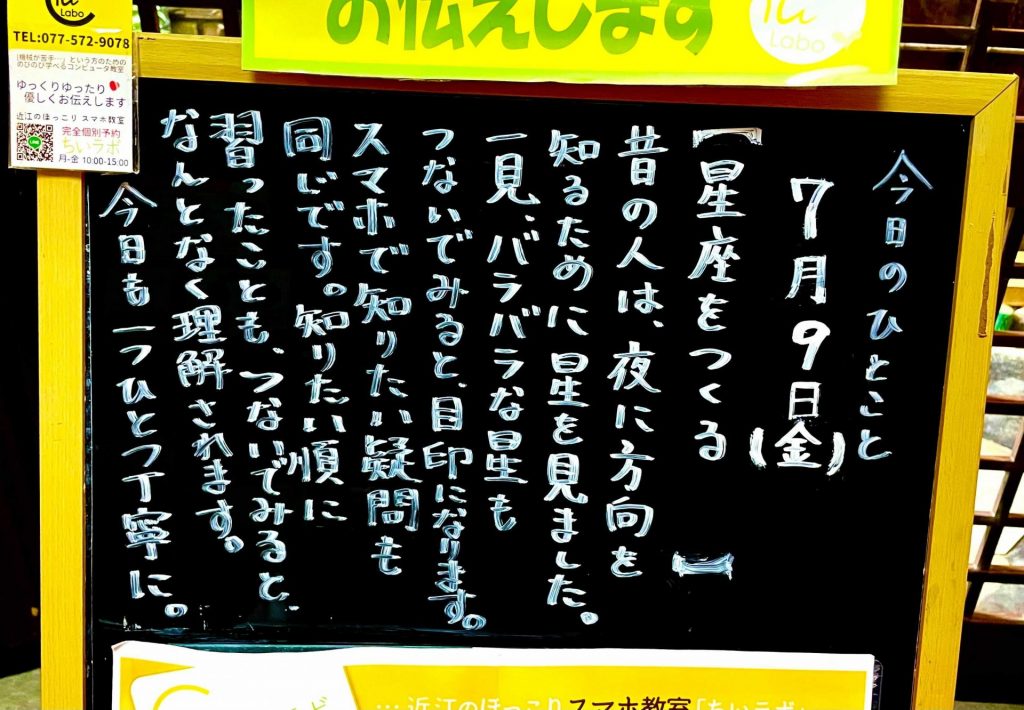 お伝えします
Labo
Labo
TEL:077-572-9078
「機械が苦手…」という方のための
のびのび学べるコンピュータ教室
ゆっくりゆったり
優しくお伝えします
近江のほっこり スマホ教室
完全個別予約
ちいラボ
月-金 10:00-15:00
LINE
今日のひとこと
7月9日(金)
【星座をつくる】
昔の人は、夜に方向を
知るために星を見ました。
一見、バラバラな星も
つないでみると、目印になります。
スマホで知りたい疑問も
同じです。知りたい順に
習ったことも、つないでみると、
なんとなく理解されます。
今日も一つひとつ丁寧に。
…近江のほっこりスマホ教室「ちいラボ」